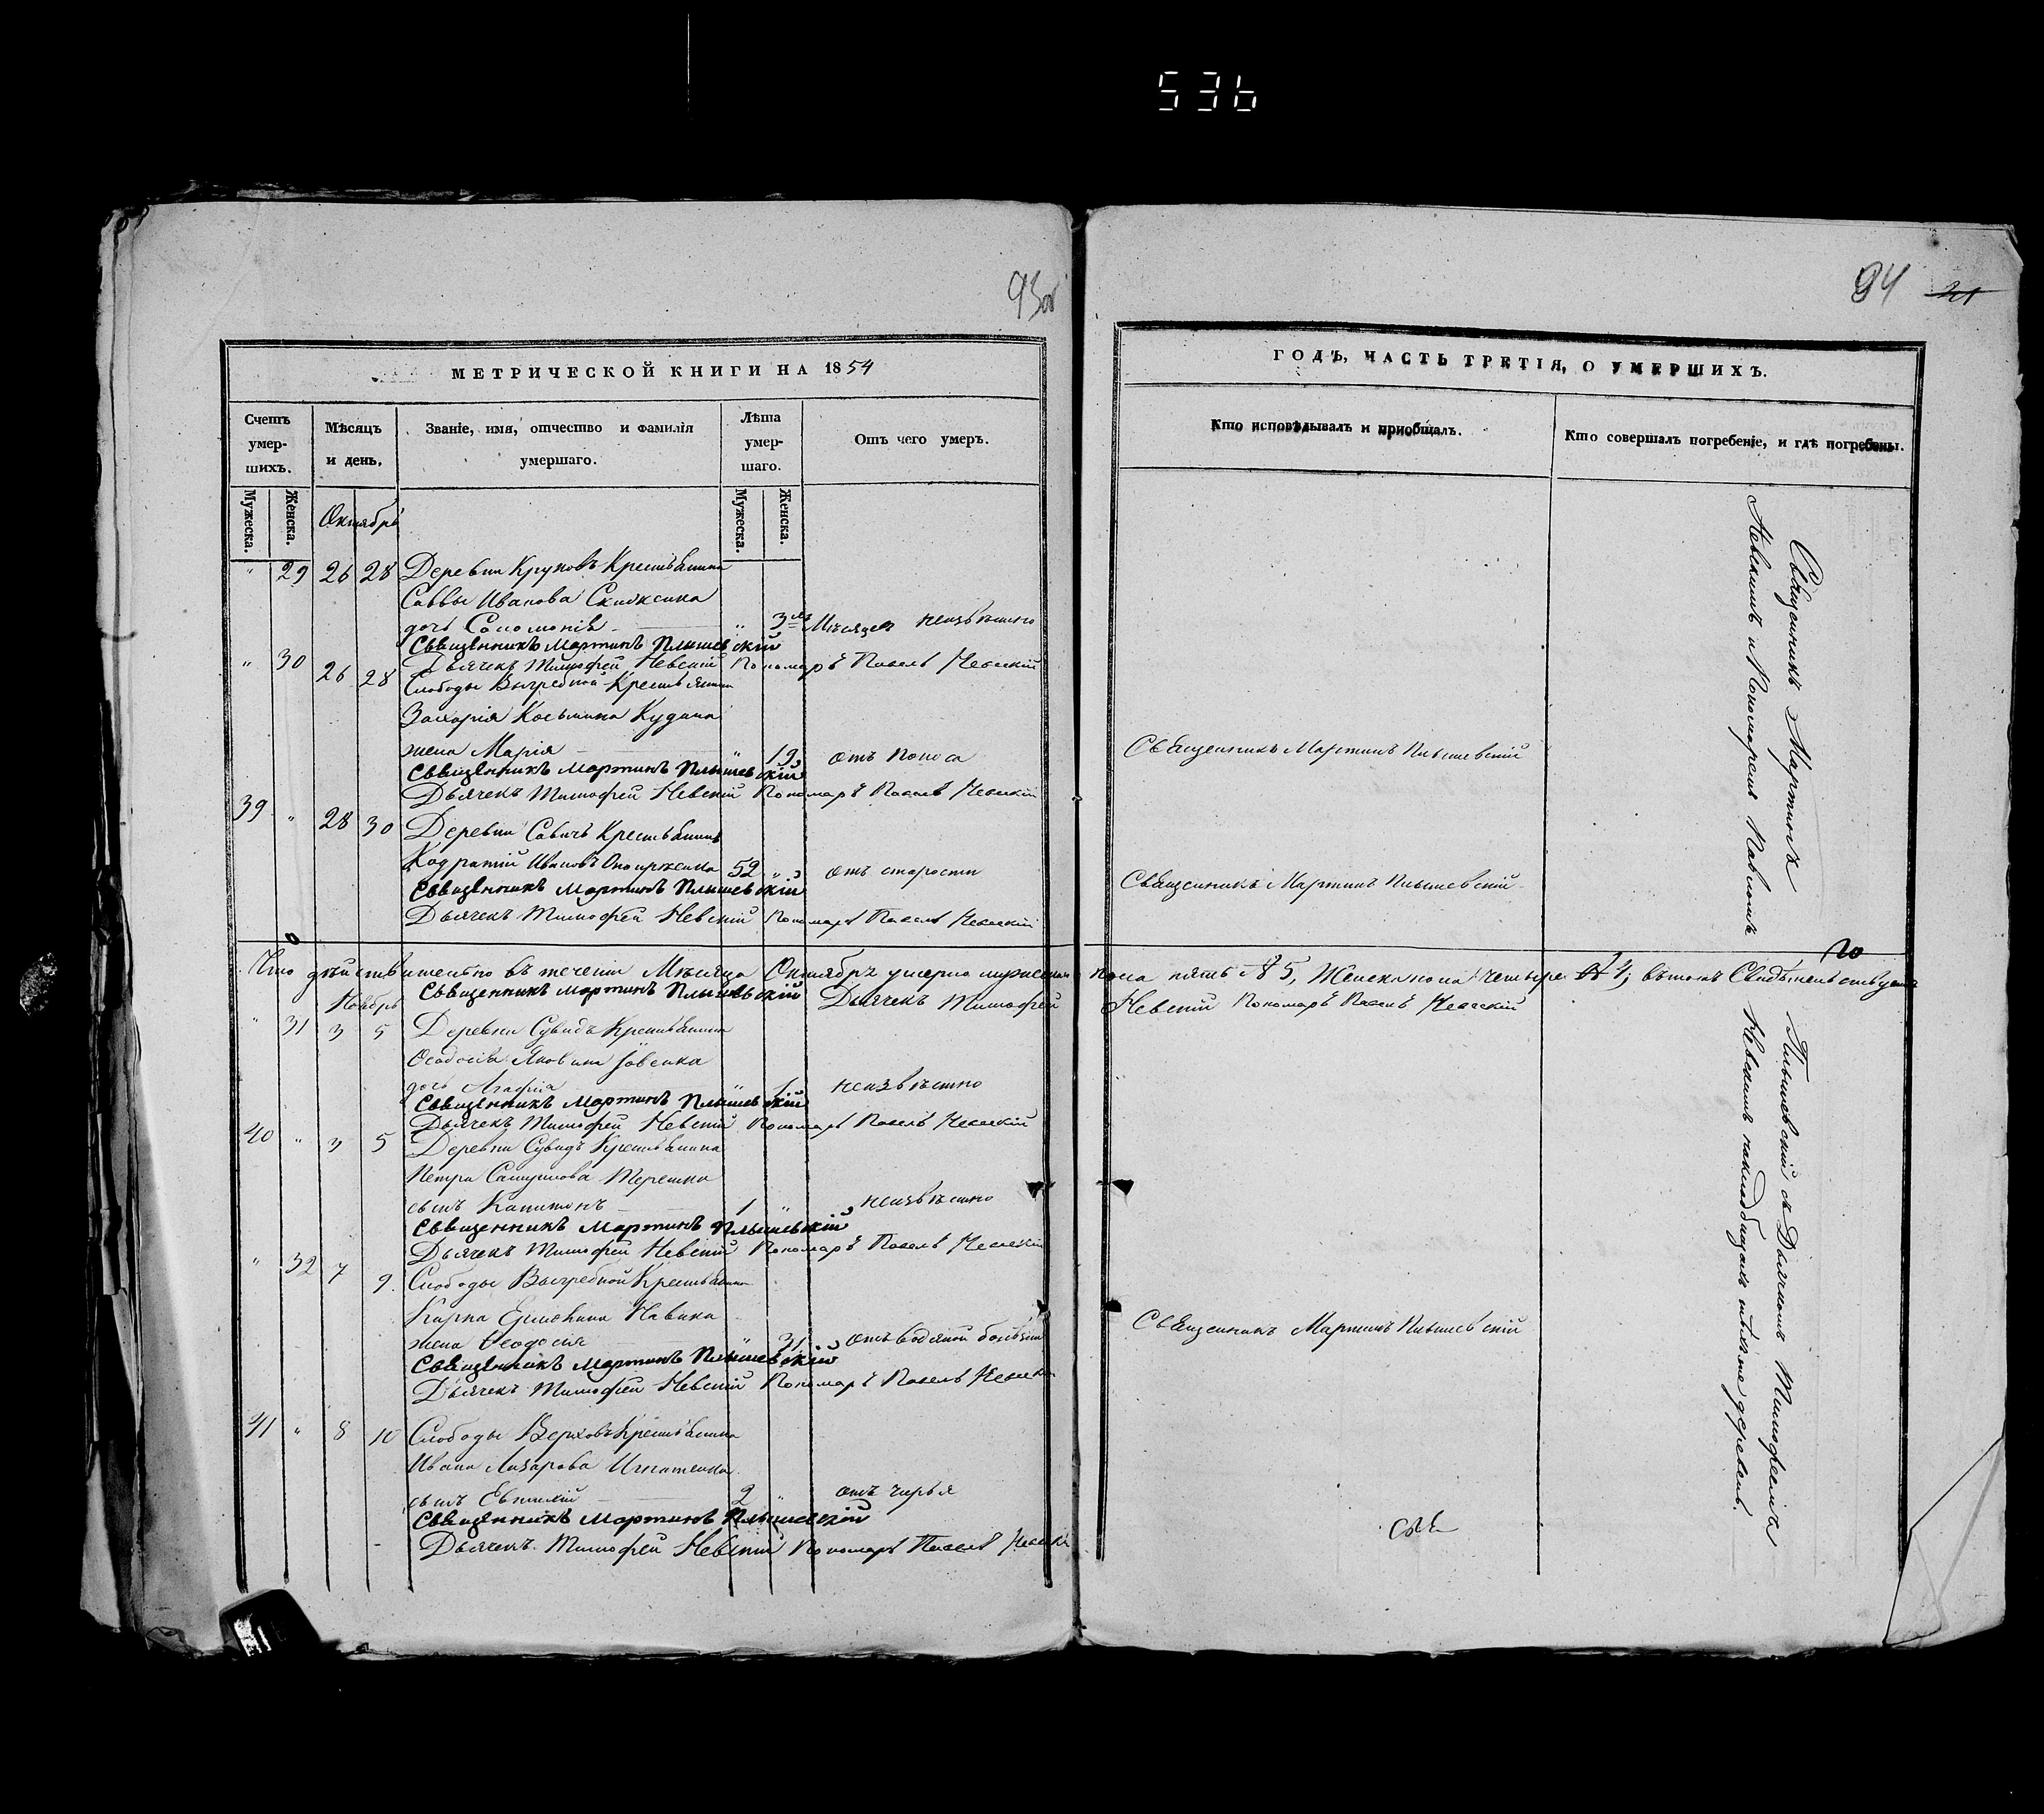 536
93об
МЕТРИЧЕСКОЙ КНИГИ НА 1854
Счетъ умершихъ.
Мѣсяцъ и день.
Званіе, имя, отчество и фамилія умершаго.
Лѣта умершаго.
Отъ чего умеръ.
Мужеска.
Женска.
Мужеска.
Женска.
Октябрь
" 29 26 28 Деревни Круповъ Крестьянина
Саввы Иванова
дочь Соломонія " 3 Мѣсяцев неизвѣстно
Священникъ Мартинъ Плышевскій
Дьячекъ Тимофей Невскій Пономарь Павелъ Невскій
" 30 26 28 Слободы Выгребной Крестьянина
Захарія Козьмина Кудина
жена Марія " 19 отъ поноса
Священникъ Мартинъ Плышевскій
Дьячекъ Тимофей Невскій Пономарь Павелъ Невскій
39 " 28 30 Деревни Савичъ Крестьянинъ
Кодратій Ивановъ 52 " отъ старости
Священникъ Мартинъ Плышевскій
Дьячекъ Тимофей Невскій Пономарь Павелъ Невскій
Что дѣйствительно въ теченіи Мѣсяца Октябрѣ умерло мужеска
Священникъ Мартинъ Плышевскій Дьячекъ Тимофей
Ноябрь
" 31 3 5 Деревни Сувидъ Крестьянина
Яковина
дочь Агафія " 1 неизвѣстно
Священникъ Мартинъ Плышевскій
Дьячекъ Тимофей Невскій Пономарь Павелъ Невскій
40 " 3 5 Деревни Сувидъ Крестьянина
Петра Самуилова Терешка
сынъ Капитонъ 1 " неизвѣстно
Священникъ Мартинъ Плышевскій
Дьячекъ Тимофей Невскій Пономарь Павелъ Невскій
" 32 7 9 Слободы Выгребной Крестьянина
Карпа
жена Феодосія " 31 отъ водяной болѣзни
Священникъ Мартинъ Плышевскій
Дьячекъ Тимофей Невскій Пономарь Павелъ Невскій
41 " 8 10 Слободы Верховъ Крестьянина
Ивана Лазарова Игнатенка
сынъ Евтихій 2 " отъ чирья
Священникъ Мартинъ Плышевскій
Дьячекъ Тимофей Невскій Пономарь Павелъ Невскій
94 21
ГОДЪ, ЧАСТЬ ТРЕТІЯ, О УМЕРШИХЪ.
Кто исповѣдывалъ и приобщалъ.
Кто совершалъ погребеніе, и гдѣ погребены.
Священникъ Мартинъ Плышевскій
Священникъ Мартинъ Плышевскій
пола пять 5, Женска пола четыре 4; въ томъ Свидѣтельствуемъ
Невскій Пономарь Павелъ Невскій
Священникъ Мартинъ Плышевскій
Священникъ Мартинъ Плышевскій съ Дьячкомъ Тимофеемъ
Невскимъ и Пономаремъ Павломъ Невскимъ на кладбищахъ деревень.